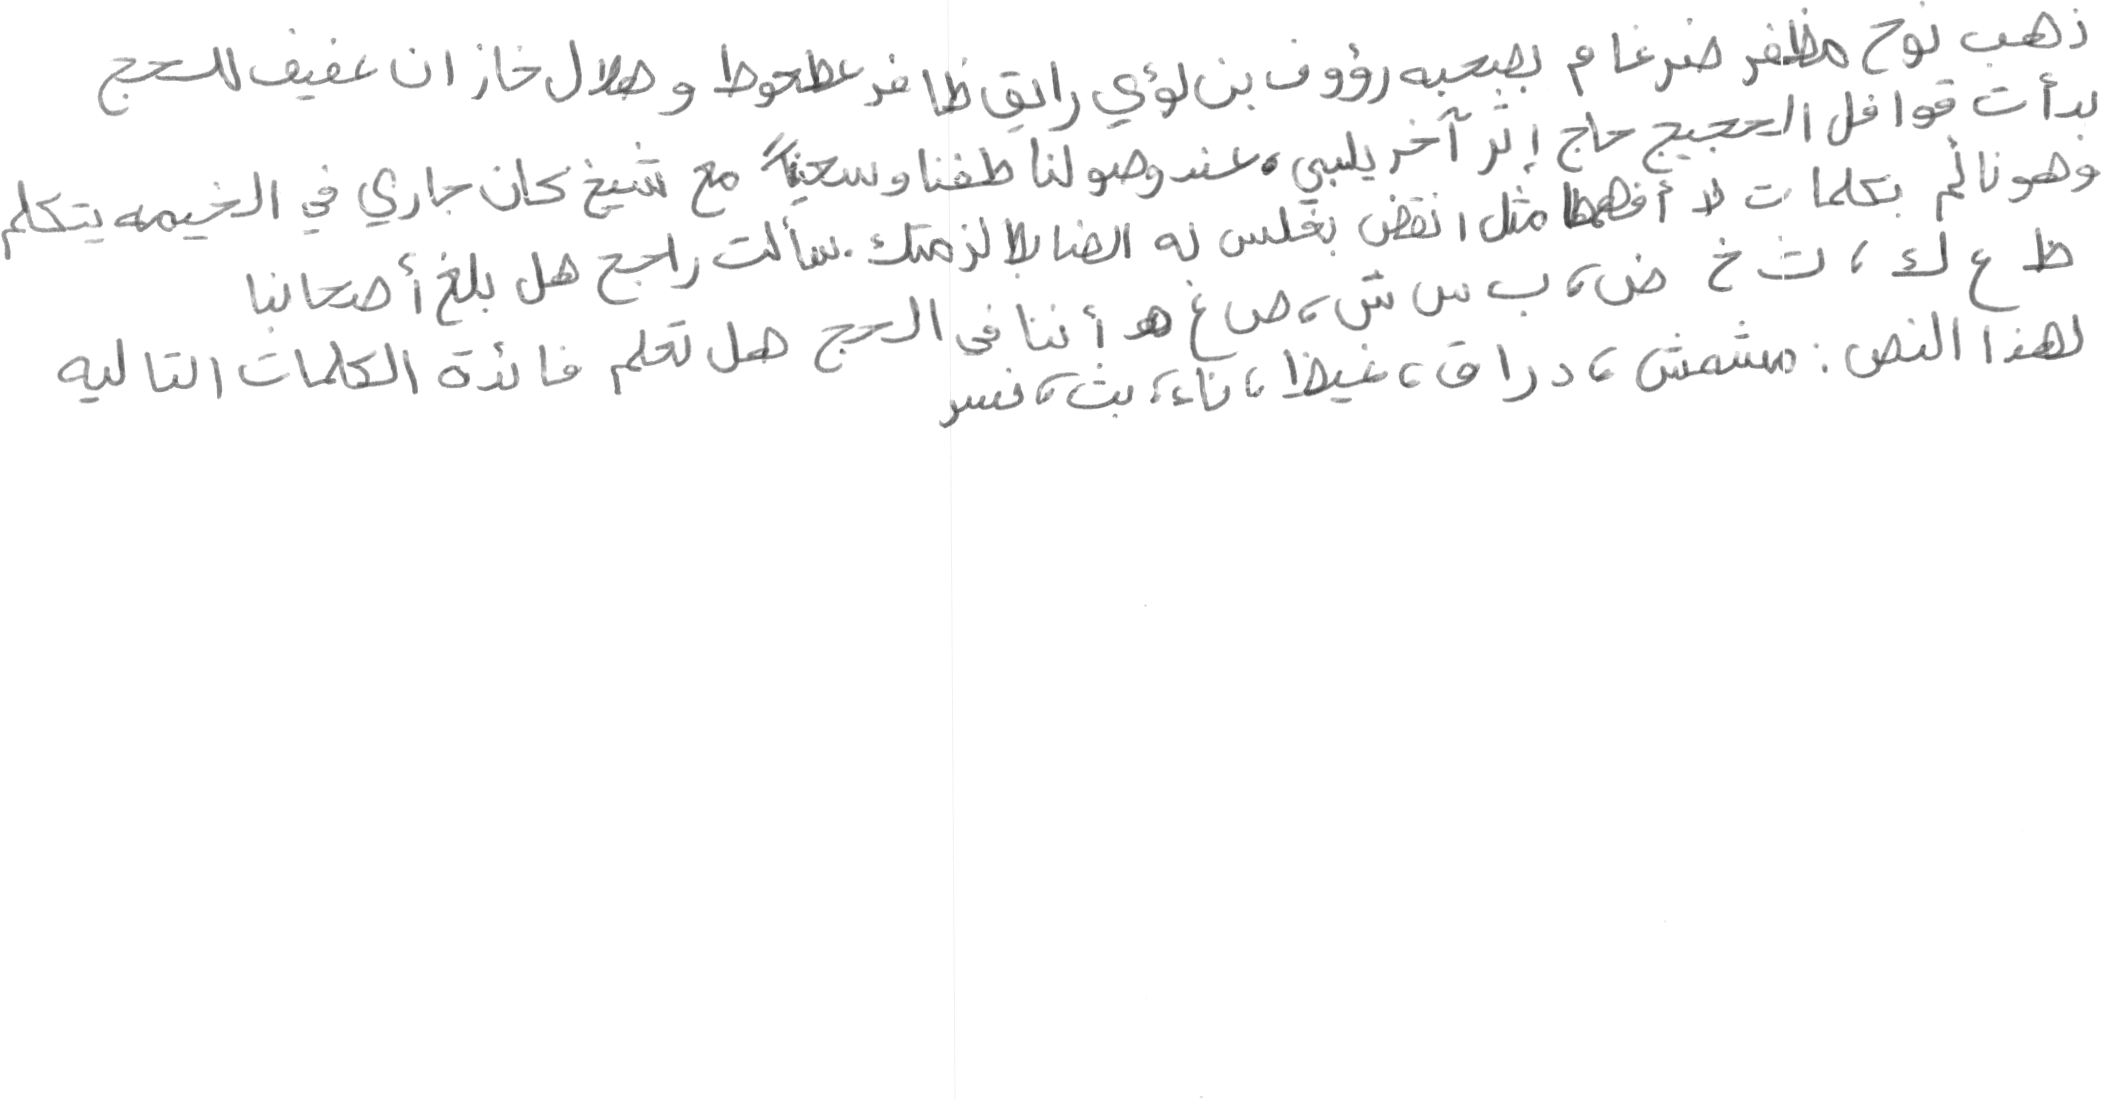 ذهب نوح مظفر ضرغام بصحبه رؤوف بن لؤي رايق ظافر عطحوط و هلال خازان عفيف للحج
بدأت قوافل الحجيج حاج إثر آخر يلبي، عند وصولنا طفنا وسعيناً مع شيخ كان جاري في الخيمه يتكلم
وهو نائم بكلمات لا أفهمها مثل انقض بغلس نه الضابلا لزمتك. سألت راجح هل بلغ أصحابنا
ظ ع ك ، ث خ ض، ب س ش، ص غ هـ أننا في الحج هل تعلم فائدة الكلمات التاليه
لهذا النص: مشمش، دراق، غيظ، ناء، بث، نسر